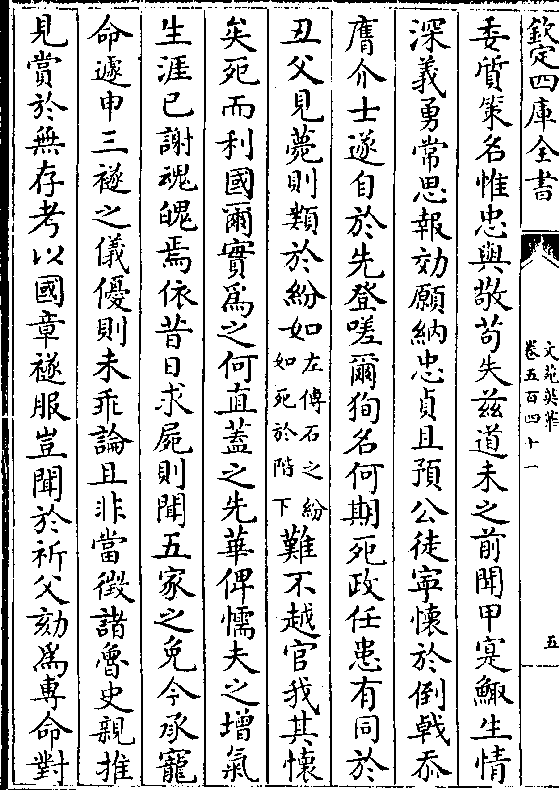 欽定四庫全書
文苑英華
卷五百四十一
五
委質策名惟忠與敬苟失兹道未之前聞甲寔鯫生情
深義勇常思報効願納忠貞且預公徒寜懷於倒戟忝
膺介士遂自於先登嗟爾狥名何期死政任患有同於
丑父見薨則類於紛如左傳石之紛如死於階下難不越官我其懷
矣死而利國爾實爲之何直蓋之先華俾懦夫之增氣
生涯已謝魂魄焉依昔日求屍則聞五家之免今承寵
命遽申三襚之儀優則未乖論且非當徴諸魯史親推
見賞於無存考以國章襚服豈聞於祈父劾爲專命對